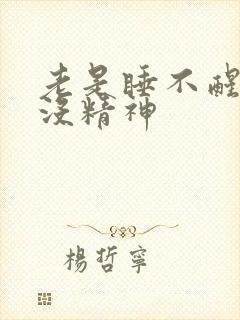 老是睡不醒
没精神
楊哲寧